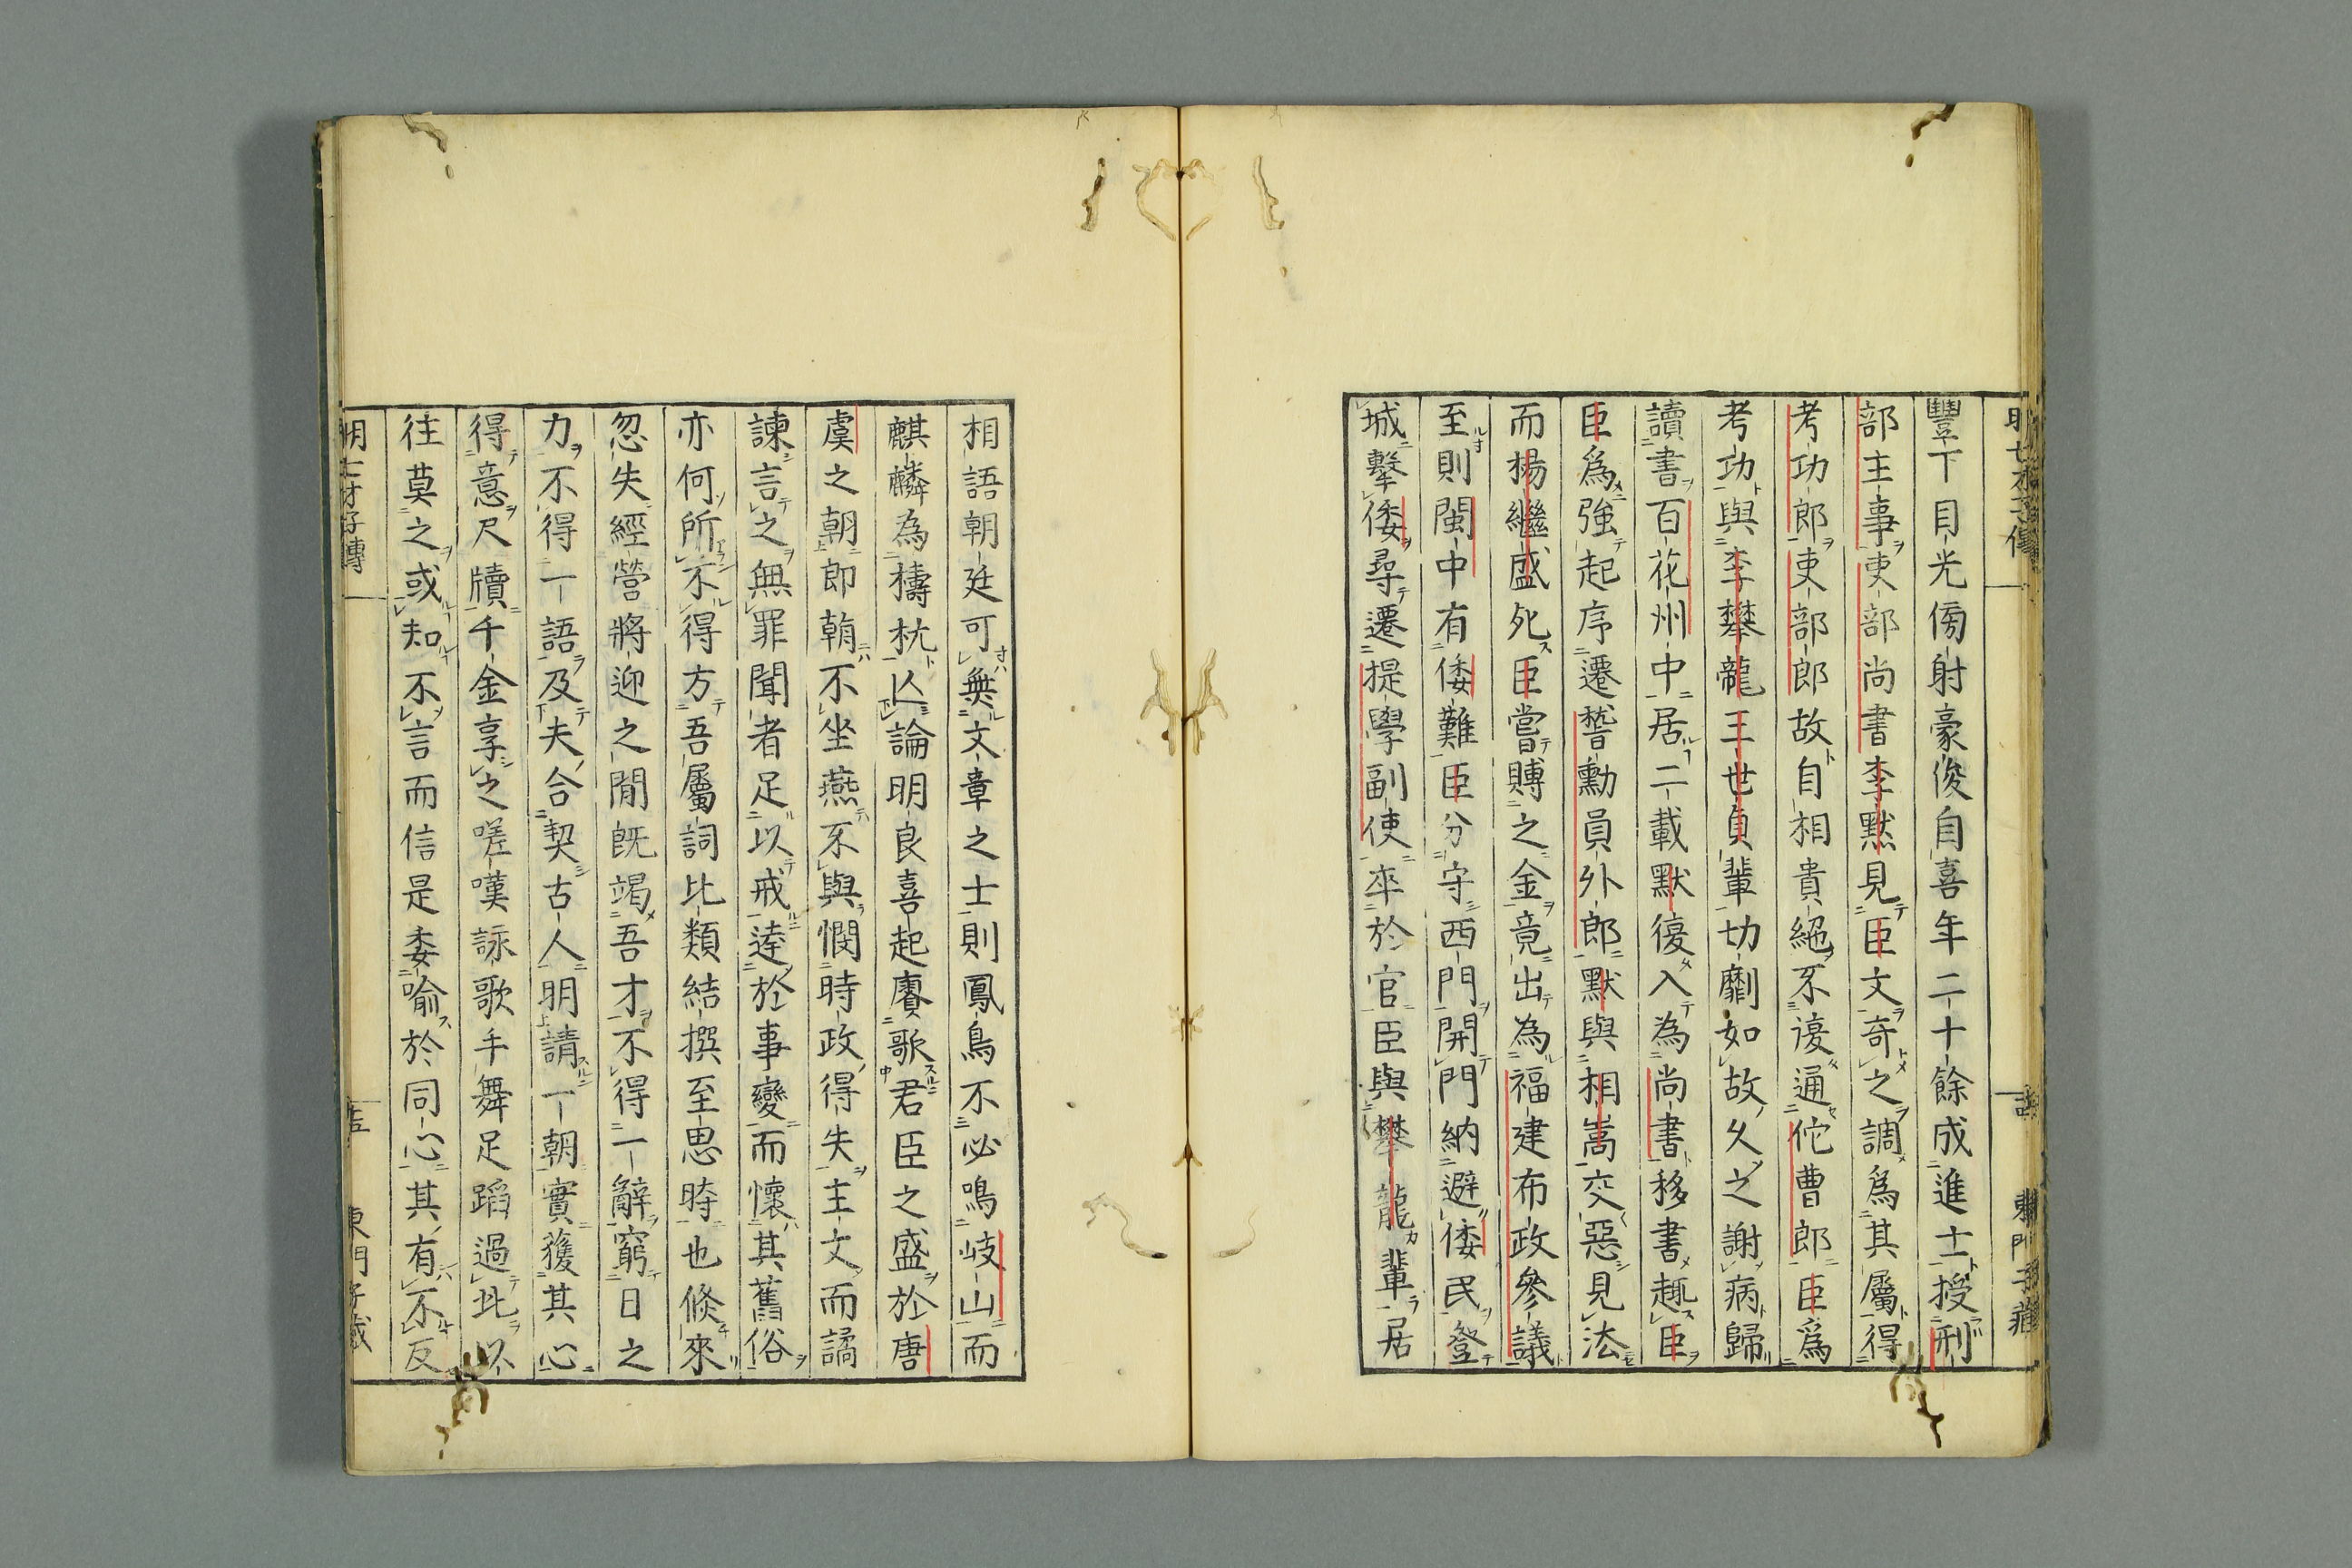 豐下目光傍射豪俊自喜年二十餘成進士授刑
部主事吏部尚書李默見臣文奇之調爲其屬得
考功郎吏部郎故自相貴絕不復通佗曹郎臣爲
考功與李攀龍王世貞輩切劘如故久之謝病歸
讀書百花州中居二載默復入為尚書移書趣臣
臣爲強起序遷嵇勳員外郎默與相嵩交惡見法
而楊繼盛死臣嘗賻之金竟出為福建布政參議
至則閩中有倭難臣分守西門開門納避倭民登
城擊倭尋遷提學副使卒於官臣與攀龍輩居
相語朝廷可無文章之士則鳳鳥不必鳴岐山而
麒麟為檮杌亾論明良喜起賡歌君臣之盛於唐
虞之朝卽翰不坐燕不與憫時政得失主文而譎
諫言之無罪聞者足以戒達於事變而懷其舊俗
亦何所不得方吾屬詞比類結撰至思時也倐來
忽失經營將迎之間既竭吾才不得一解窮日之
力不得一語及夫合契古人明請一朝實獲其心
得意尺牘千金享之嗟嘆詠歌手舞足蹈過此以
往莫之或知不言而信是委喻於同心其有不反
明七才子傳
東門